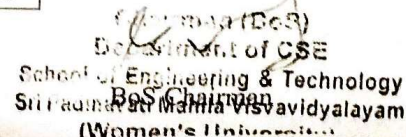 Chairman (BoS)
Department of CSE
School of Engineering & Technology
Sri Padmavati Mahila Visvavidyalayam
BoS Chairman
(Women's University)